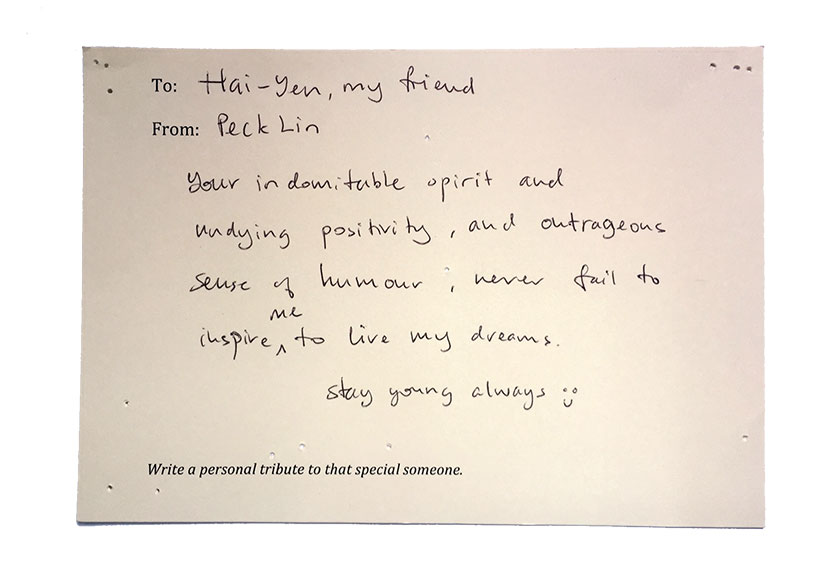 To: Hai-Yen, my friend
From: Peck Lin
Your indomitable spirit and
undying positivity, and outrageous
sense of humour, never fail to
inspire me to live my dreams.
stay young always :)
Write a personal tribute to that special someone.